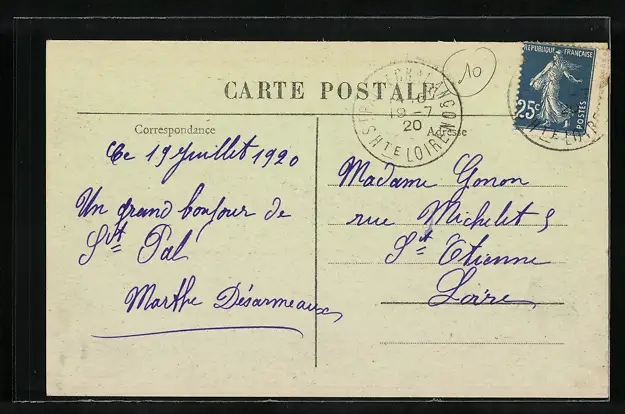 CARTE POSTALE
10
REPUBLIQUE FRANÇAISE
25c
POSTES
19 -7
20
HTE LOIRE
Correspondance
Adresse
Ce 19 Juillet 1920
Un grand bonjour de
St Pal
Marthe Désarmeaux
Madame Gonon
rue Michelet 9
St Etienne
Loire